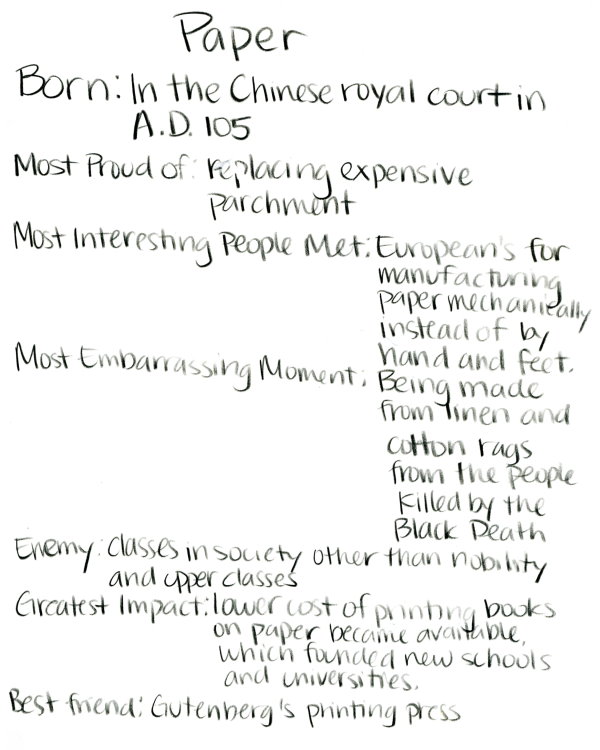 Paper
Born: In the Chinese royal court in
A.D. 105
Most Proud of: replacing expensive
parchment
Most Interesting People Met: European's for
manufacturing
paper mechanically
instead of by
hand and feet.
Most Embarrassing Moment: Being made
from linen and
cotton rags
from the people
killed by the
Black Death
Enemy: Classes in society other than nobility
and upper classes
Greatest Impact: lower cost of printing books
on paper became available,
which founded new schools
and universities.
Best friend: Gutenberg's printing press